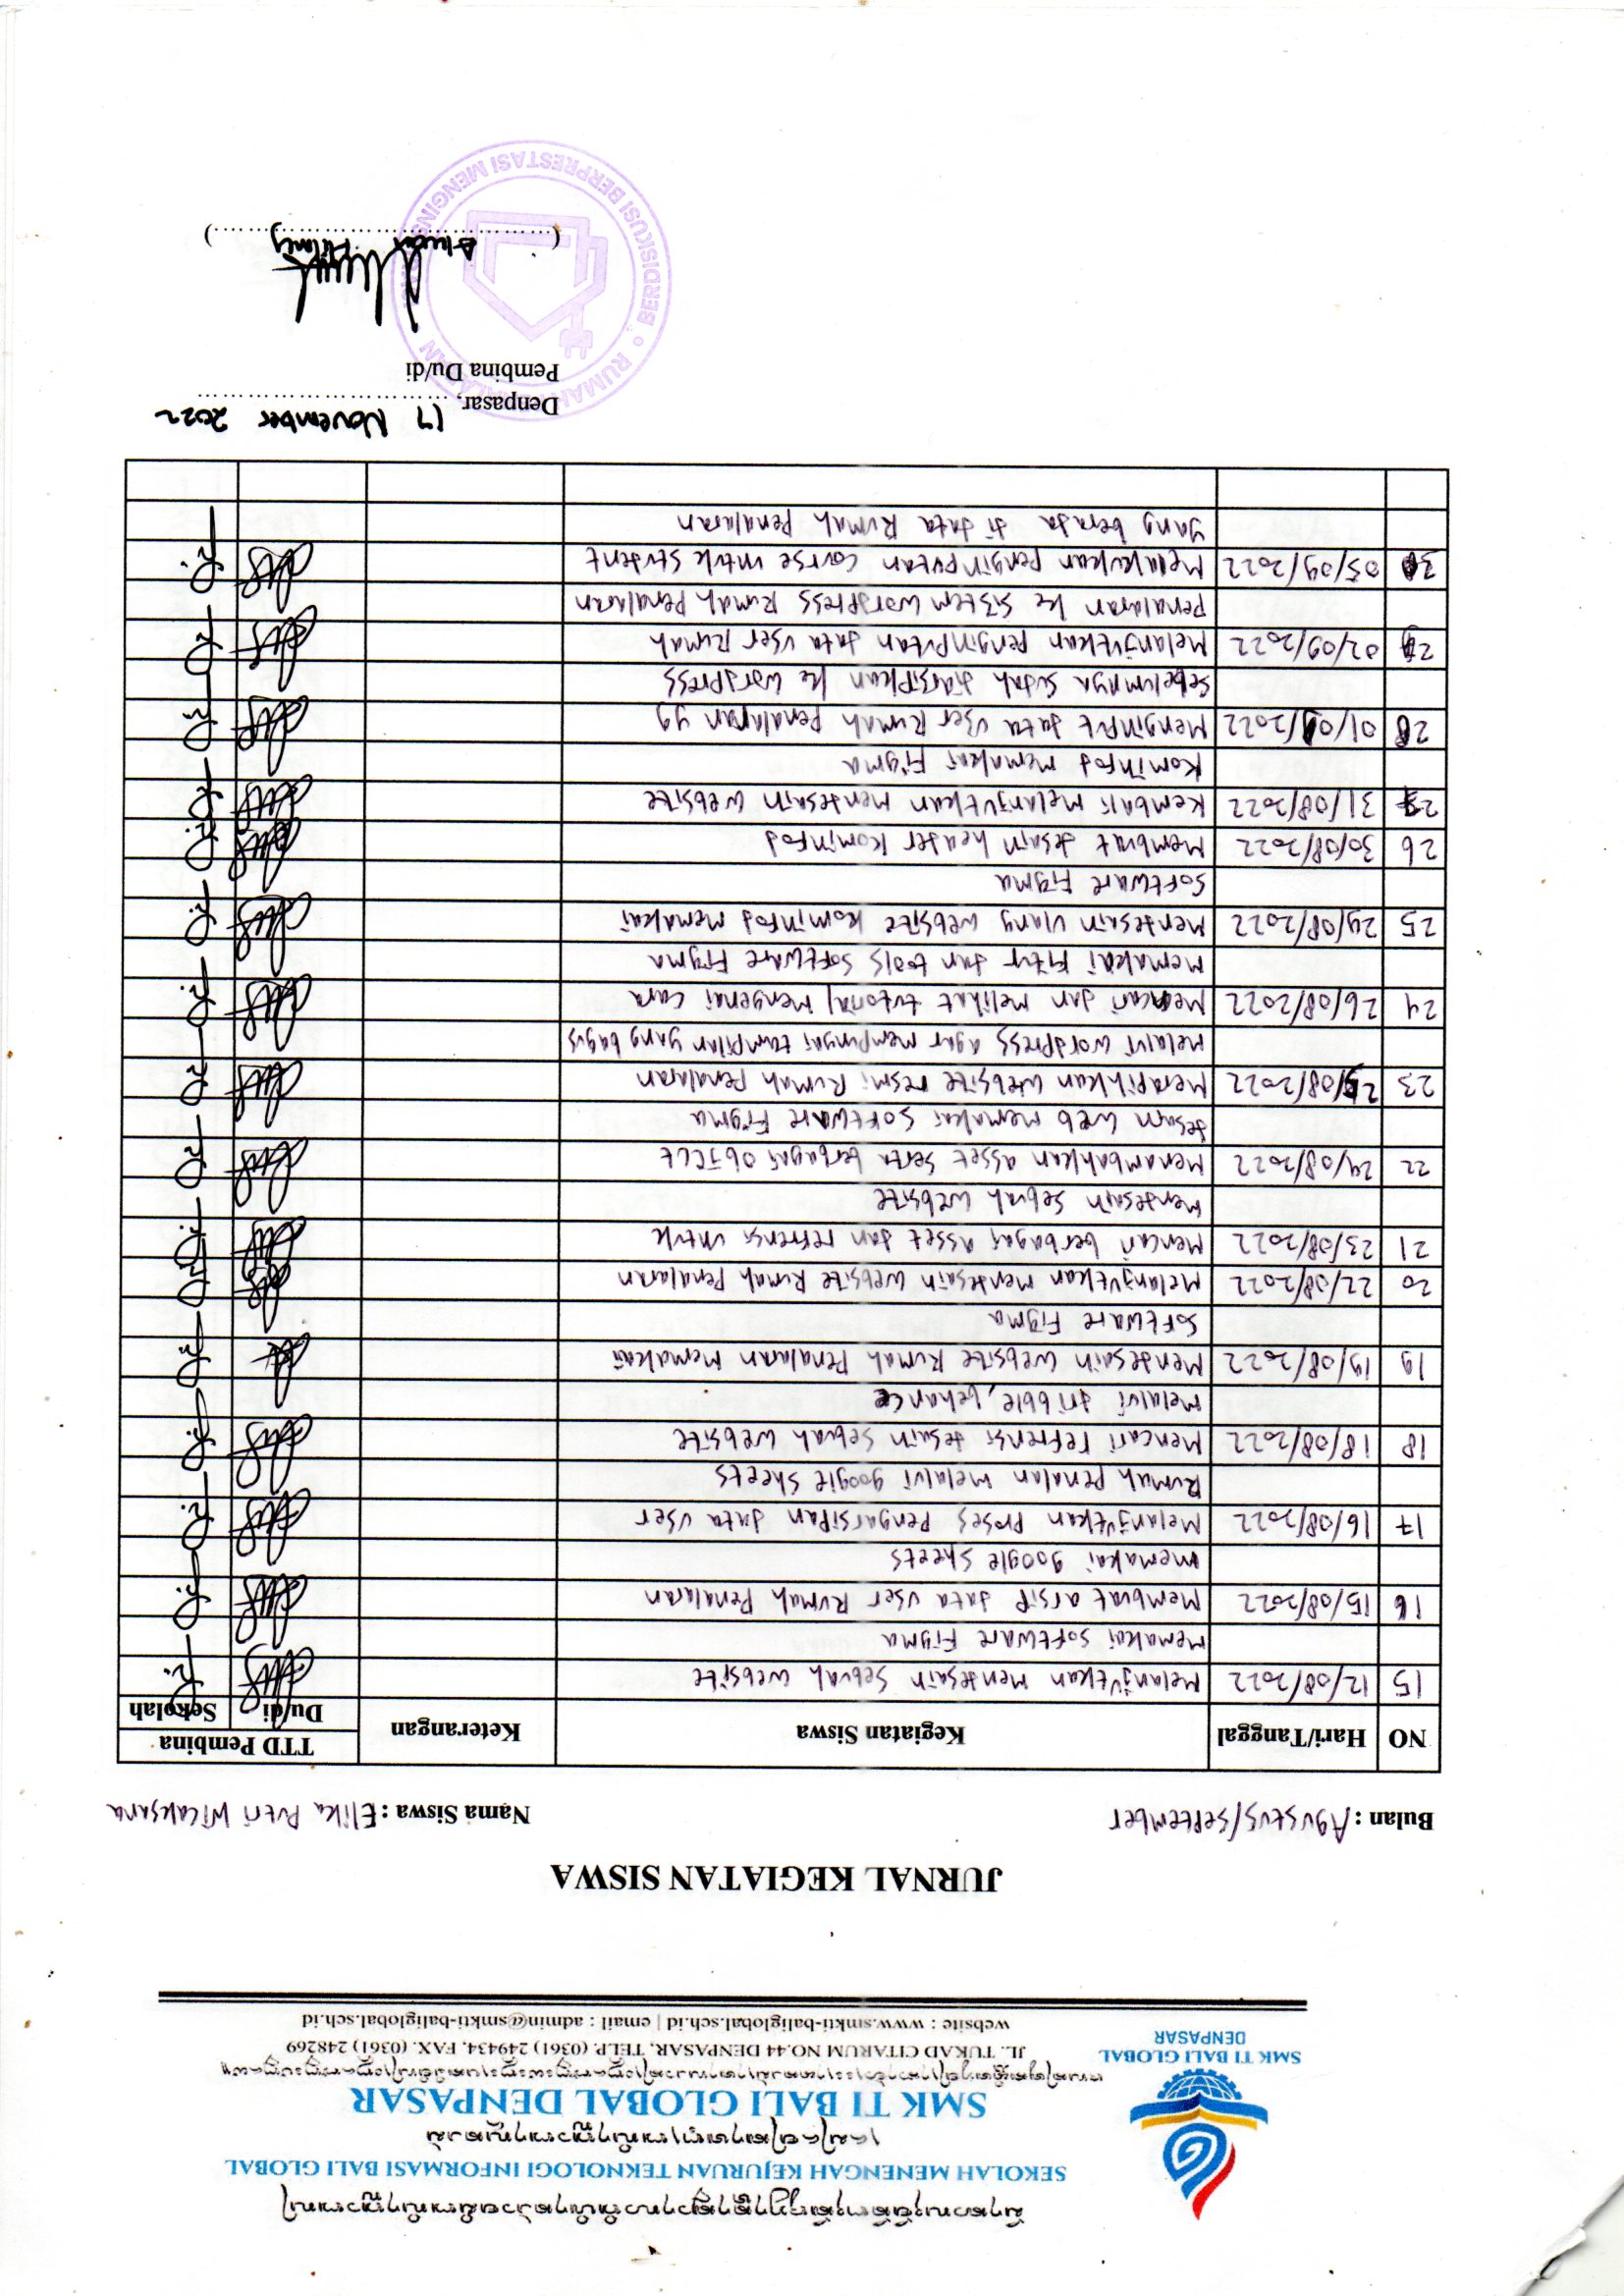 SEKOLAH MENENGAH KEJURUAN TEKNOLOGI INFORMASI BALI GLOBAL
SMK TI BALI GLOBAL DENPASAR
SMK TI BALI GLOBAL
DENPASAR
JL. TUKAD CITARUM NO.44 DENPASAR, TELP. (0361) 249434, FAX. (0361) 248269
website : www.smkti-baliglobal.sch.id | email : admin@smkti-baliglobal.sch.id
JURNAL KEGIATAN SISWA
Bulan : Agustus/September Nama Siswa : Elika Putri Wicaksana
NO Hari/Tanggal Kegiatan Siswa Keterangan TTD Pembina
Du/di Sekolah
15 12/08/2022 Melanjutkan Mendesain Sebuah website
Memakai software Figma
16 15/08/2022 Membuat arsip data user Rumah Penalaran
memakai google sheets
17 16/08/2022 Melanjutkan Proses Pengarsipan data user
Rumah penalan melalui google sheets
18 18/08/2022 Mencari refrensi desain sebuah website
Melalui dribble, behance
19 19/08/2022 Mendesain website Rumah Penalaran Memakai
Software Figma
20 22/08/2022 Melanjutkan mendesain website Rumah Penalaran
21 23/08/2022 Mencari berbagai asset dan refrensi untuk
Mendesain sebuah website
22 24/08/2022 Menambahkan asset serta berbagai object
desain web memakai software Figma
23 25/08/2022 Merapihkan website resmi Rumah penalaran
Melalui wordpress agar mempunyai tampilan yang bagus
24 26/08/2022 Mencari dan melihat tutorial mengenai cara
Memakai Fitur dan tools software Figma
25 29/08/2022 Mendesain ulang website kominfod Memakai
Software Figma
26 30/08/2022 Membuat desain header kominfod
27 31/08/2022 Kembali Melanjutkan Mendesain website
Kominfod memakai Figma
28 01/09/2022 Menginput data user Rumah penalaran yg
sebelumnya sudah diarsipkan ke wordpress
29 02/09/2022 Melanjutkan penginputan data user Rumah
Penalaran ke sistem wordpress Rumah Penalaran
30 05/09/2022 Melakukan penginputan course untuk student
yang berada di data Rumah Penalaran
Denpasar, 17 November 2022
Pembina Du/di
RUMAH PENALARAN
BERDISKUSI BERPRESTASI